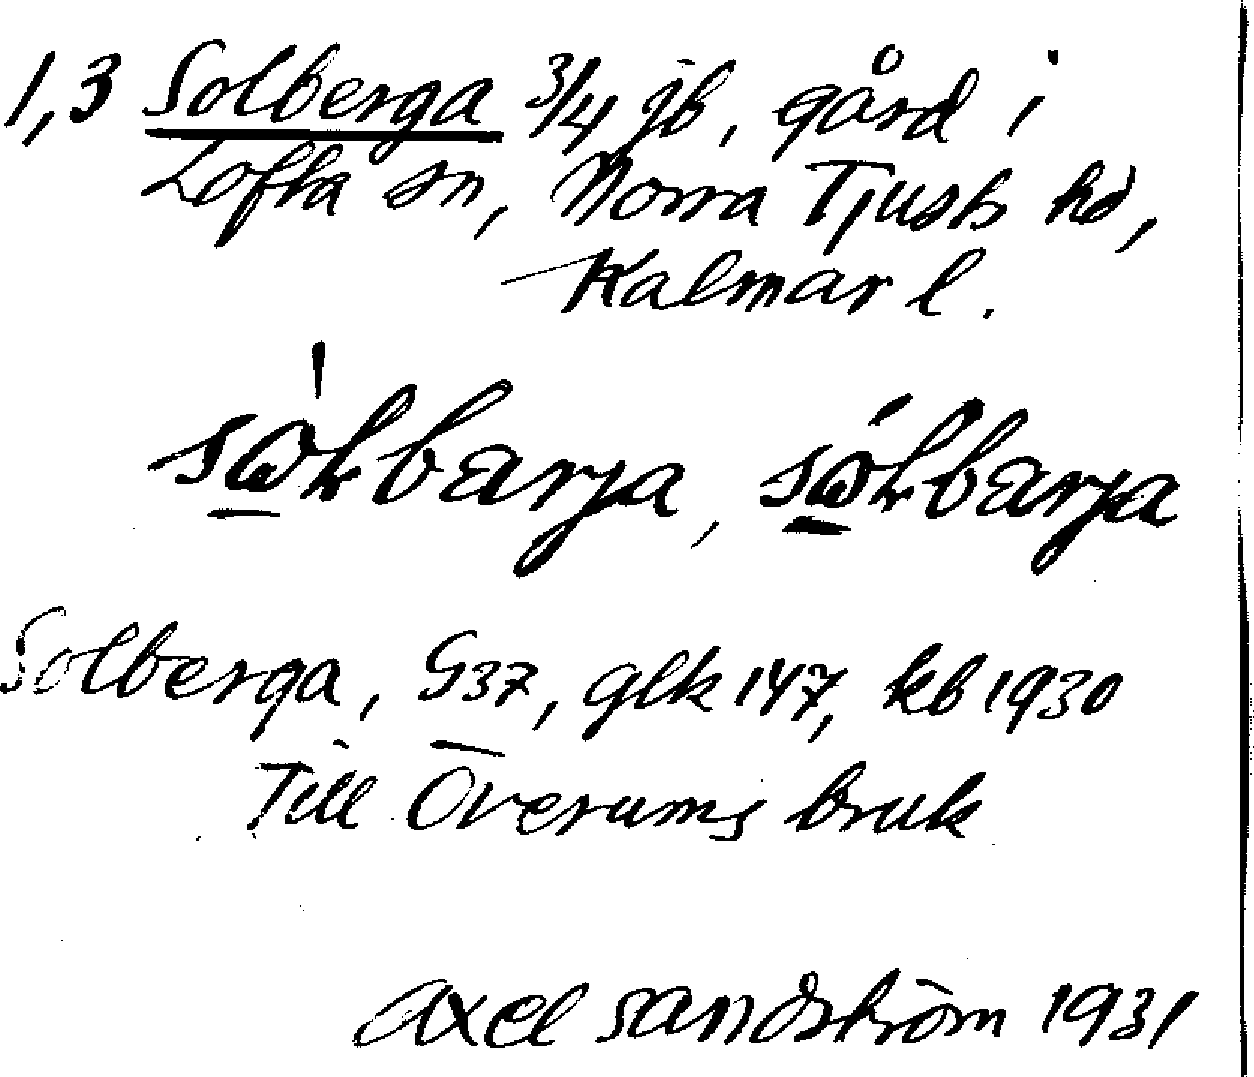 1,3 Solberga 3/4 jb, gård i
Lofta sn, Norra Tjusts hd,
Kalmar l.
Solberga, G37, glk 147, kb 1930
Till Överums bruk
Axel Sandström 1931